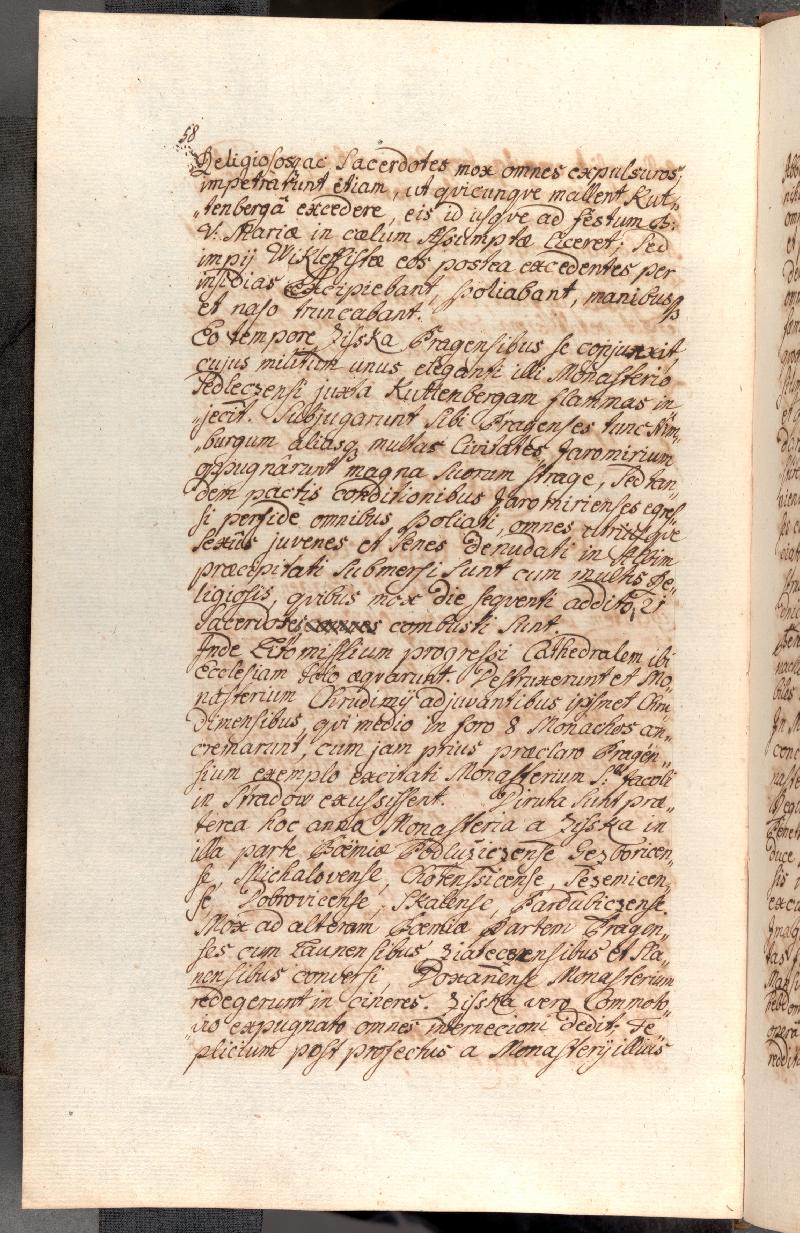 58
Religiososq; ac Sacerdotes mox omnes expulsuros,
impetrarunt etiam, ut qvicunqve mallent Kut„
„tenbergâ excedere, eis id usqve ad festum B:
V: Mariæ in cœlum Assumptæ liceret; Sed
impij Wikleffistæ eos postea excedentes per
insidias excipiebant, spoliabant, manibusq;
et naso truncabant.
Eo tempore Zisska Pragensibus se conjunxit
cujus militum unus eleganti illi Monasterio
Sedleczensi juxta Kuttenbergam flammas in
„jecit. Subjugarunt sibi Pragenses tunc Nim„
„burgum aliasq; multas Civitates, Jaromirium
oppugnârunt magna suorum strage, Sed tan„
dem pactis conditionibus Jaromirienses egres„
si perfide omnibus spoliati, omnes utriusqve
sexûs juvenes et senes denudati in Albim
præcipitati submersi sunt cum multis Re„
ligiosis, qvibus mox die seqventi addito, 21
Sacerdotes combusti sunt.
Inde Litomislium progressi Cathedralem ibi
Ecclesiam solo æqvarunt. Destruxerunt et Mo„
nasterium Chrudimij adjuvantibus ipsmet Chru
dimensibus, qvi medio in foro 8 Monachos con„
cremarunt, cum jam prius præclaro Pragen„
sium exemplo excitati Monasterium S: Jacobi
in Stradow exussissent. Diruta sunt præ„
terea hoc anno Monasteria a Zisska in
illa parte Boëmiæ Podlužiczense Gezboricen„
se, Michalovense, Chotenssicense, Sezemicen„
se, Dobrovicense, Skalense, Pardubiczense.
Mox ad alteram Boemiæ Partem Pragen„
ses cum Launensibus Ziatecensibus et Sla„
nensibus conversi, Doxanense Monasterium
redegerunt in cineres. Zisska vero Commoto„
„vio expugnato omnes internecioni dedit; Te„
plicium post profectus a Monasterij illius